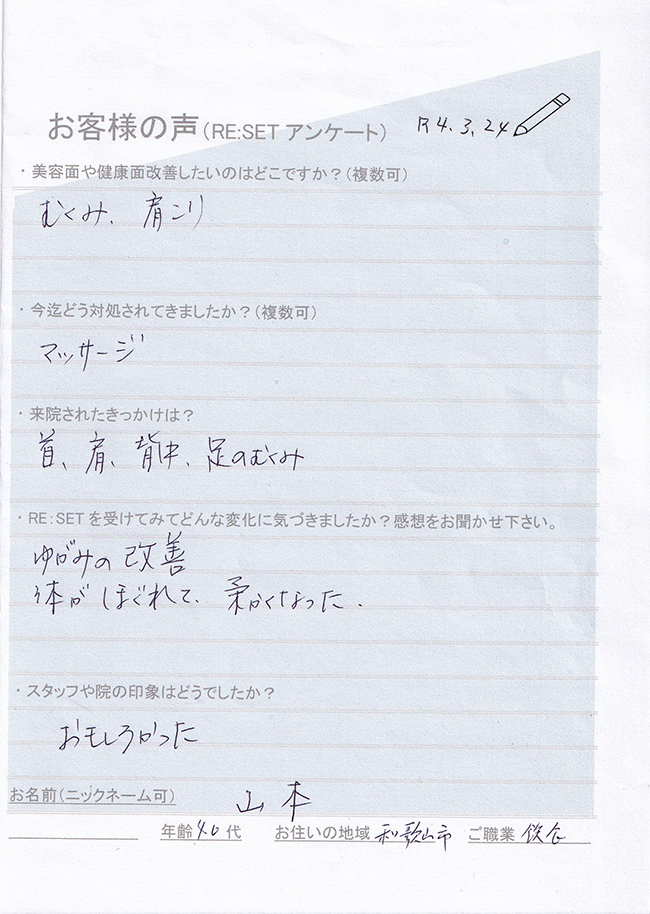 お客様の声(RE:SET アンケート) R4.3.24
・美容面や健康面改善したいのはどこですか?(複数可)
むくみ、肩こり
・今迄どう対処されてきましたか?(複数可)
マッサージ
・来院されたきっかけは?
首、肩、背中、足のむくみ
・RE:SETを受けてみてどんな変化に気づきましたか?感想をお聞かせ下さい。
ゆがみの改善
体がほぐれて、柔かくなった.
・スタッフや院の印象はどうでしたか?
おもしろかった
お名前(ニックネーム可) 山本
年齢 40代 お住いの地域 和歌山市 ご職業